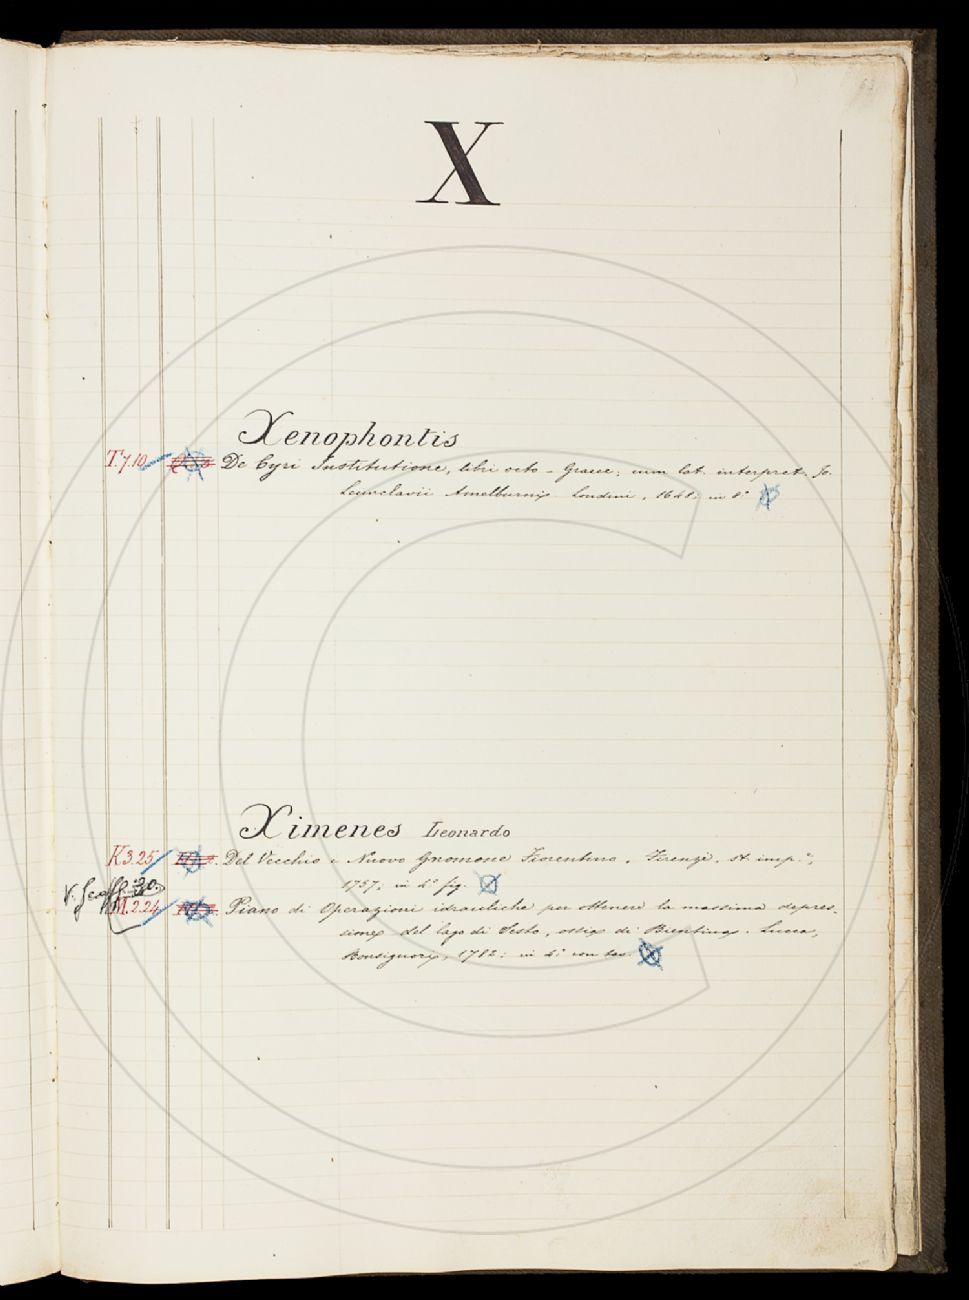 X
Xenophontis
T.7.10 De Cyri Institutione, libri octo - Graece; cum lat. interpret. Jo.
Leunclavii Amelburnis. Londini, 1648; in 8°
Ximenes Leonardo
K3.25 Del Vecchio e Nuovo Gnomone Fiorentino. Firenze, St. imp.e,
1757; in 4° fig.
M.2.24 Piano di Operazioni idrauliche per ottenere la massima depres-
sione del lago di Sesto, ossia di Bientina. Lucca,
Bonsignori, 1782; in 4° con tav.